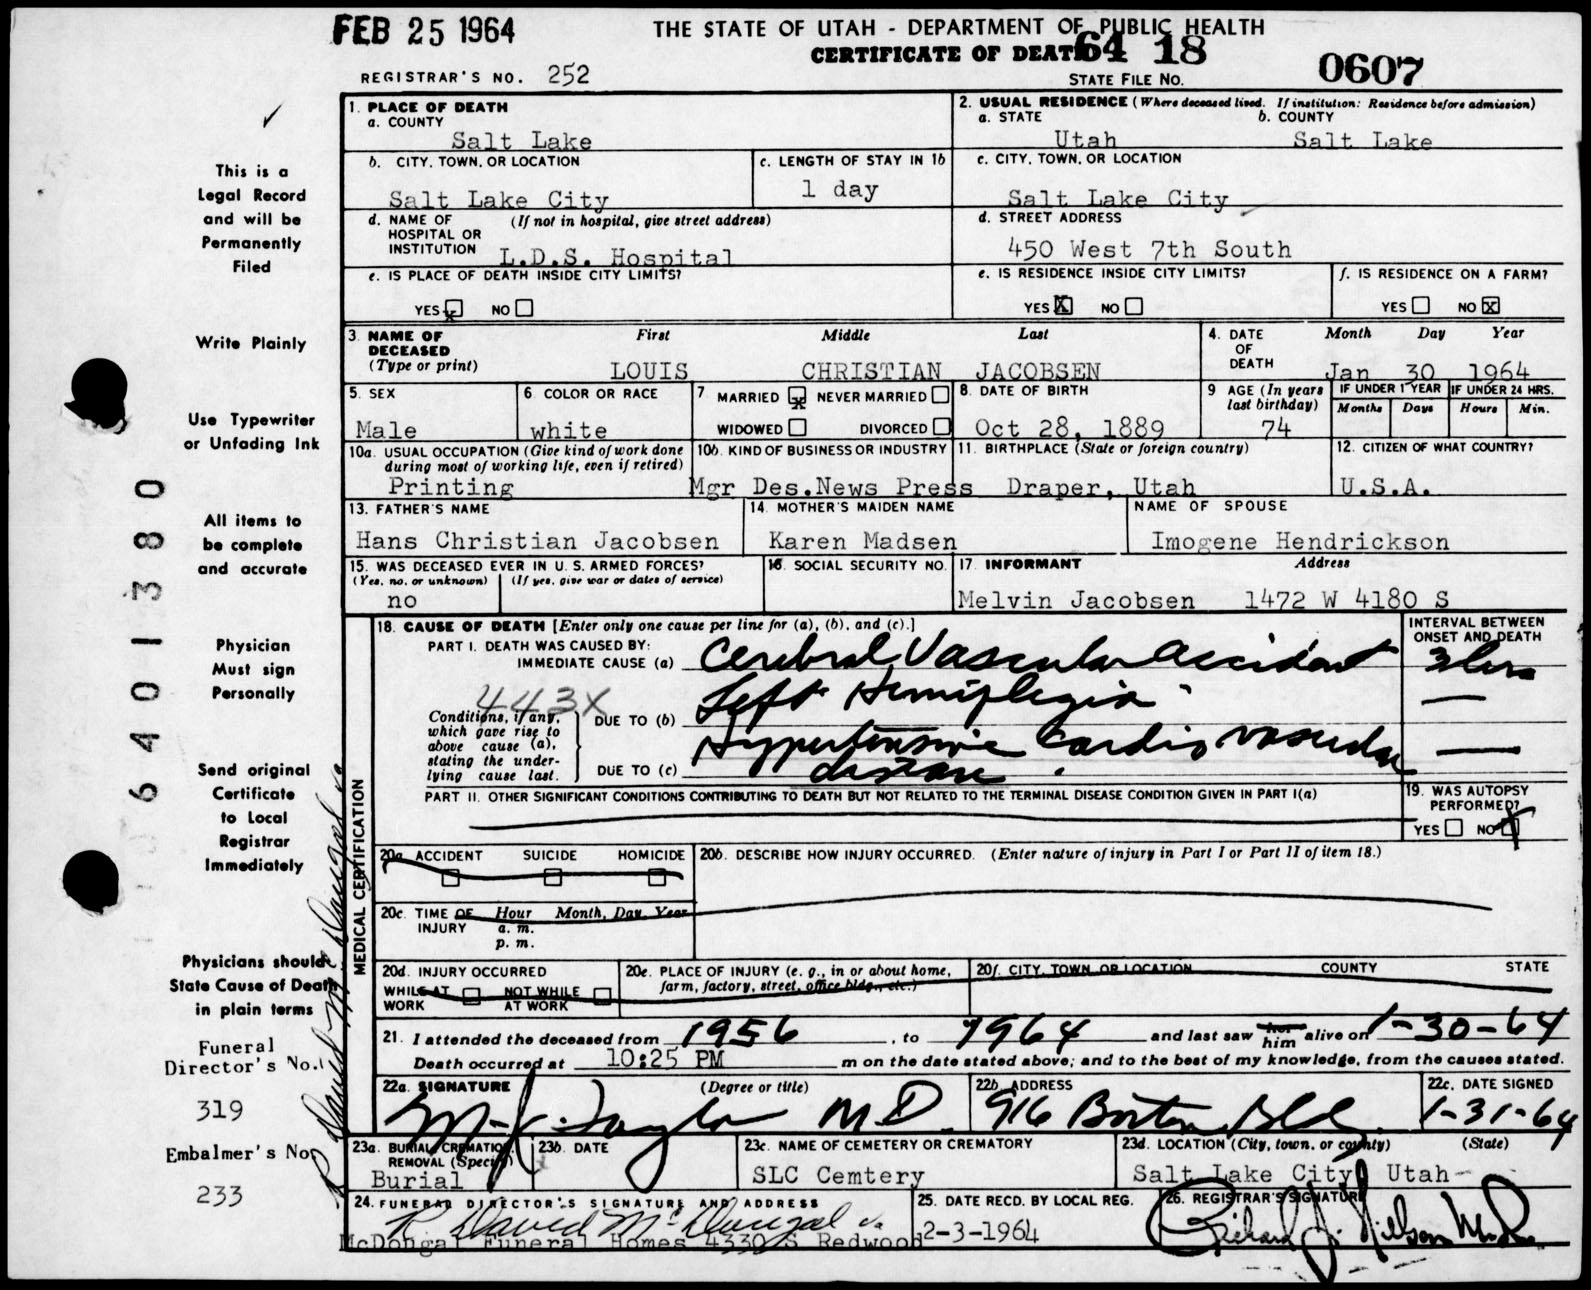 FEB 25 1964
THE STATE OF UTAH - DEPARTMENT OF PUBLIC HEALTH
CERTIFICATE OF DEATH 64 18 0607
REGISTRAR'S NO. 252
STATE FILE NO.
1. PLACE OF DEATH
a. COUNTY
Salt Lake
2. USUAL RESIDENCE (Where deceased lived. If institution: Residence before admission)
a. STATE b. COUNTY
Utah Salt Lake
b. CITY, TOWN, OR LOCATION
Salt Lake City
c. LENGTH OF STAY IN 1b
1 day
c. CITY, TOWN, OR LOCATION
Salt Lake City
d. NAME OF HOSPITAL OR INSTITUTION (If not in hospital, give street address)
L.D.S. Hospital
d. STREET ADDRESS
450 West 7th South
e. IS PLACE OF DEATH INSIDE CITY LIMITS?
YES x NO
e. IS RESIDENCE INSIDE CITY LIMITS?
YES X NO
f. IS RESIDENCE ON A FARM?
YES NO X
3. NAME OF DECEASED (Type or print)
First Middle Last
LOUIS CHRISTIAN JACOBSEN
4. DATE OF DEATH
Month Day Year
Jan 30 1964
5. SEX
Male
6. COLOR OR RACE
white
7 MARRIED x NEVER MARRIED
WIDOWED DIVORCED
8. DATE OF BIRTH
Oct 28, 1889
9 AGE (In years last birthday)
74
IF UNDER 1 YEAR IF UNDER 24 HRS.
Months Days Hours Min.
10a. USUAL OCCUPATION (Give kind of work done during most of working life, even if retired)
Printing
10b. KIND OF BUSINESS OR INDUSTRY
Mgr Des.News Press
11. BIRTHPLACE (State or foreign country)
Draper, Utah
12. CITIZEN OF WHAT COUNTRY?
U.S.A.
13. FATHER'S NAME
Hans Christian Jacobsen
14. MOTHER'S MAIDEN NAME
Karen Madsen
NAME OF SPOUSE
Imogene Hendrickson
15. WAS DECEASED EVER IN U.S. ARMED FORCES?
(Yes, no, or unknown) (If yes, give war or dates of service)
no
16. SOCIAL SECURITY NO.
17. INFORMANT Address
Melvin Jacobsen 1472 W 4180 S
MEDICAL CERTIFICATION
18. CAUSE OF DEATH [Enter only one cause per line for (a), (b), and (c).]
INTERVAL BETWEEN ONSET AND DEATH
PART I. DEATH WAS CAUSED BY:
IMMEDIATE CAUSE (a) Cerebral Vascular accident
443X
Conditions, if any, which gave rise to above cause (a), stating the underlying cause last.
DUE TO (b) Left Hemiplegia
DUE TO (c) Hypertensive Cardio vascular disease
PART II. OTHER SIGNIFICANT CONDITIONS CONTRIBUTING TO DEATH BUT NOT RELATED TO THE TERMINAL DISEASE CONDITION GIVEN IN PART I(a)
19. WAS AUTOPSY PERFORMED?
YES NO X
20a ACCIDENT SUICIDE HOMICIDE
20b. DESCRIBE HOW INJURY OCCURRED. (Enter nature of injury in Part I or Part II of item 18.)
20c. TIME OF INJURY Hour Month, Day, Year
a. m.
p. m.
20d. INJURY OCCURRED
WHILE AT WORK NOT WHILE AT WORK
20e. PLACE OF INJURY (e. g., in or about home, farm, factory, street, office bldg., etc.)
20f. CITY, TOWN, OR LOCATION COUNTY STATE
21. I attended the deceased from 1956, to 1964 and last saw her him alive on 1-30-64
Death occurred at 10:25 PM m on the date stated above; and to the best of my knowledge, from the causes stated.
22a. SIGNATURE (Degree or title)
Taylor M D.
22b. ADDRESS
916 Boston Bld.
22c. DATE SIGNED
1-31-64
23a. BURIAL, CREMATION, REMOVAL (Specify)
Burial
23b. DATE
23c. NAME OF CEMETERY OR CREMATORY
SLC Cemtery
23d. LOCATION (City, town, or county) (State)
Salt Lake City Utah
24. FUNERAL DIRECTOR'S SIGNATURE AND ADDRESS
R David McDougal
McDougal Funeral Homes 4330 S Redwood
25. DATE RECD. BY LOCAL REG.
2-3-1964
26. REGISTRAR'S SIGNATURE
This is a
Legal Record
and will be
Permanently
Filed
Write Plainly
Use Typewriter
or Unfading Ink
All items to
be complete
and accurate
Physician
Must sign
Personally
Send original
Certificate
to Local
Registrar
Immediately
Physicians should
State Cause of Death
in plain terms
Funeral
Director's No.
319
Embalmer's No
233
R David McDougal
6401380